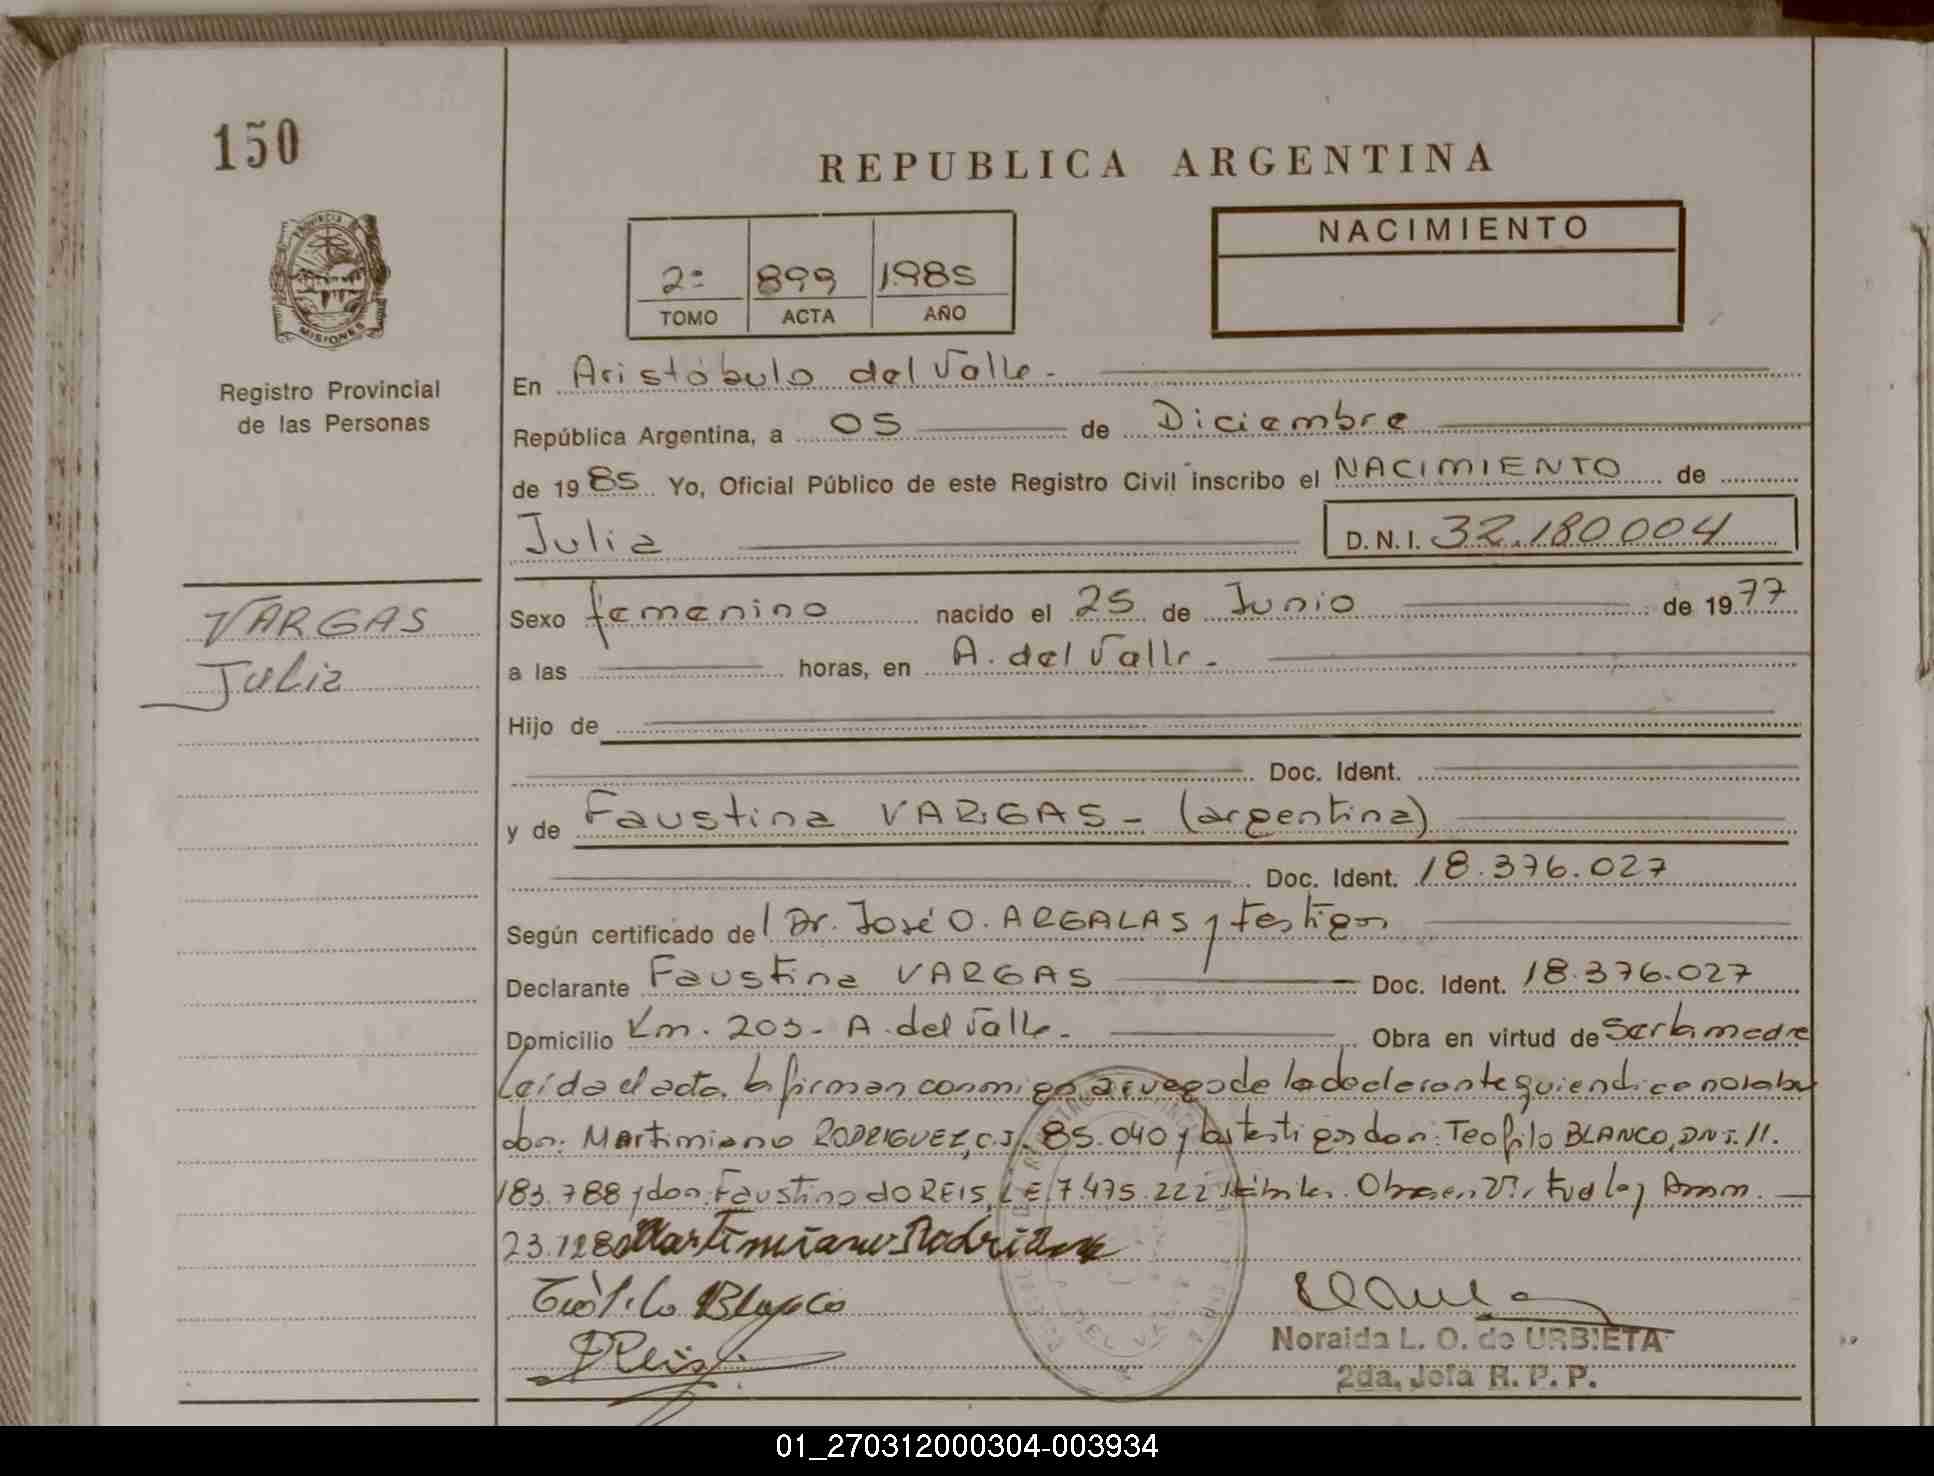 150
REPUBLICA ARGENTINA
NACIMIENTO
2º 899 1985
TOMO ACTA AÑO
PROVINCIA
MISIONES
Registro Provincial
de las Personas
En Aristóbulo del Valle.-
República Argentina, a 05 de Diciembre
de 1985 Yo, Oficial Público de este Registro Civil inscribo el NACIMIENTO de
Julia D.N.I. 32.180.004
VARGAS
Julia
Sexo femenino nacido el 25 de Junio de 1977
a las horas, en A. del Valle.
Hijo de
Doc. Ident.
y de Faustina VARGAS - (argentina)
Doc. Ident. 18.376.027
Según certificado del Dr. José O. ARGALAS y testigos
Declarante Faustina VARGAS Doc. Ident. 18.376.027
Domicilio Km. 203- A. del Valle.- Obra en virtud de Ser la madre
Leída el acta, la firman conmigo a ruego de la declarante quien dice no saber
don: Martimiano RODRIGUEZ, C.I. 85.040 y los testigos don: Teofilo BLANCO, DNI. 11.
183.788 y don: Faustino do REIS, L E 7.475.222 hábiles. Obra en Virtud ley
23.128 Martimiano Rodriguez
Teófilo Blanco
Reis
Noraida L. O. de URBIETA
2da. Jefa R. P. P.
01_270312000304-003934